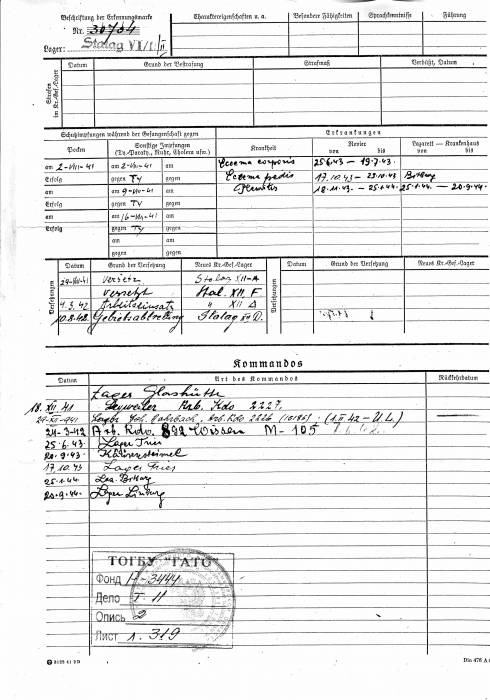 Beschriftung der Erkennungsmarke
Nr. 30704
Lager: Stalag VII
Charaktereigenschaften u. a.
Besondere Fähigkeiten
Sprachkenntnisse
Führung
Strafen im Kr.-Gef.-Lager
Datum
Grund der Bestrafung
Strafmaß
Verbüßt, Datum
Schutzimpfungen während der Gefangenschaft gegen
Pocken
Sonstige Impfungen
(Ty.-Paraty., Ruhr, Cholera usw.)
Erkrankungen
Krankheit
Revier
von bis
Lazarett — Krankenhaus
von bis
am 2-VIII-41 am 2-VIII-41 am
Erfolg gegen Ty gegen
am am 9-VIII-41 am
Erfolg gegen Ty gegen
am am 16-VIII-41 am
Erfolg gegen Ty gegen
am am
gegen gegen
am am
gegen gegen
Eccema corporis 25.6.43 – 19.7.43.
Eccema pedis 17.10.43 – 25.10.43
18.11.43. – 25.1.44. 25.1.44. – 20.9.44.
Versetzungen
Datum
Grund der Versetzung
Neues Kr.-Gef.-Lager
Versetzungen
Datum
Grund der Versetzung
Neues Kr.-Gef.-Lager
versetzt Stalag XII-A
versetzt Stal. XII. F
4.3.42 Arbeitseinsatz " XII D
10.8.42. Gebietsabtretung Stalag XII D.
Kommandos
Datum
Art des Kommandos
Rückkehrdatum
Lager Glashütte
18. XII 41 Arb. Kdo 2227.
Arb. Kdo 2226 (1.II 42-U.L.)
Arb. Kdo. 892 Wissen M-105
25.6.43. Lager Trier
20.9.43.
17.10.43 Lager Trier
25.1.44. Laz.
20.9.44. Lager Limburg
ТОГБУ "ГАТО"
Фонд Н-3444
Дело Т. 11
Опись 2
Лист л. 319
Din 476 A